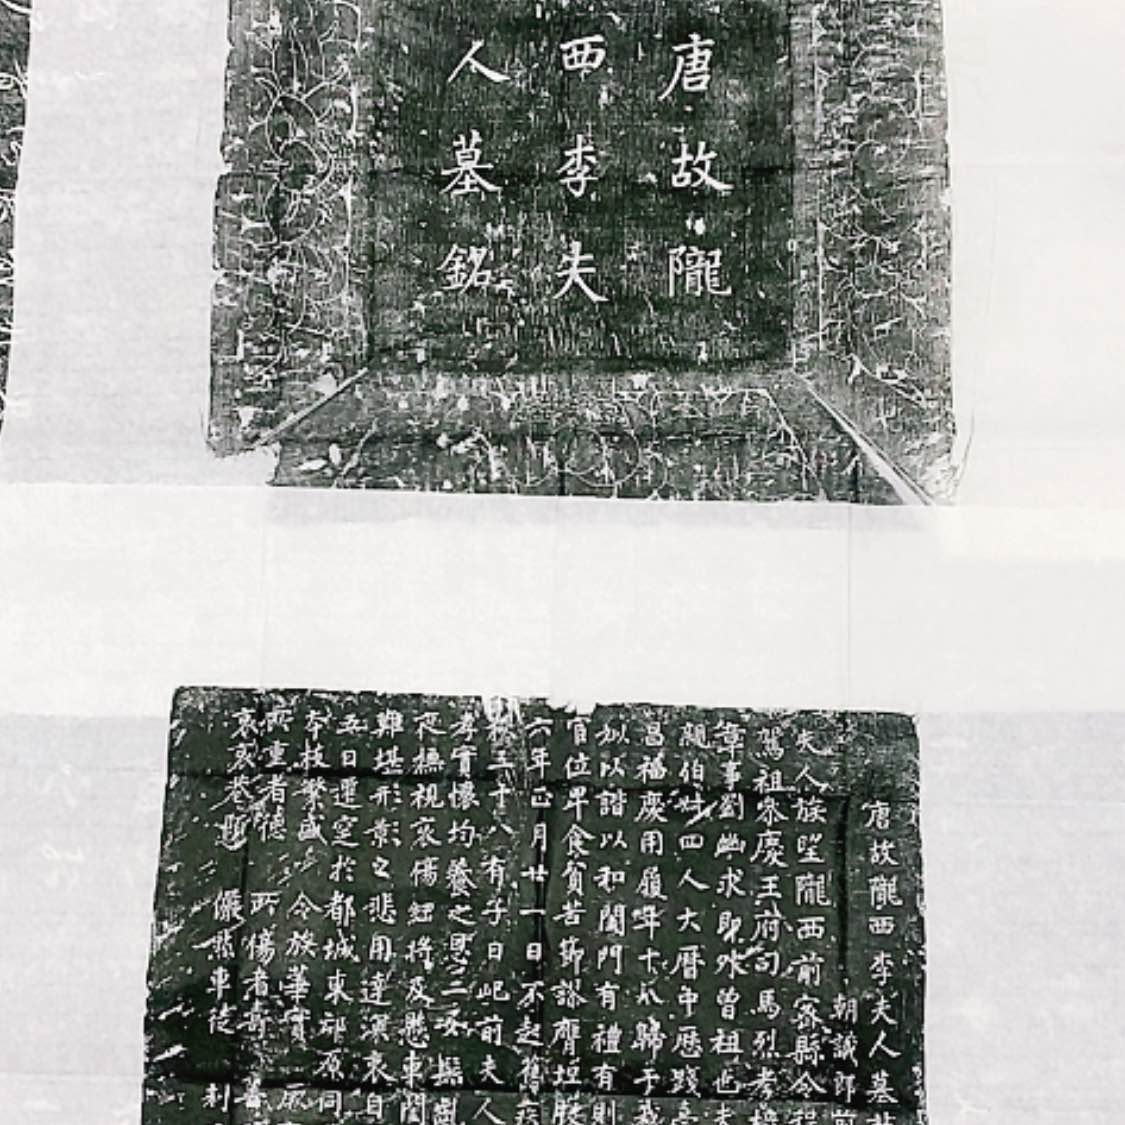 唐故隴
西李夫
人墓銘
唐故隴西李夫人墓
朝議郎前
夫人族望隴西前密縣令
駕祖泰慶王府司馬烈考
章事劉幽求即外曾祖也夫
顯伯姊四人大曆中歷踐
昌福慶用履年十八歸于我
以諧以和閨門有禮有則
官位卑食貧苦節謬膺垣
六年正月廿一日不起舊疾
三十八有子曰屺前夫人
孝實懷均養之恩二女
撫視哀傷紐將及懸車閨
難堪形影之悲用達深哀自
五日遷窆於都城東郊原同
本枝繁盛 令族華實
所重者德 所傷者奇
哀哀 儼然車徒